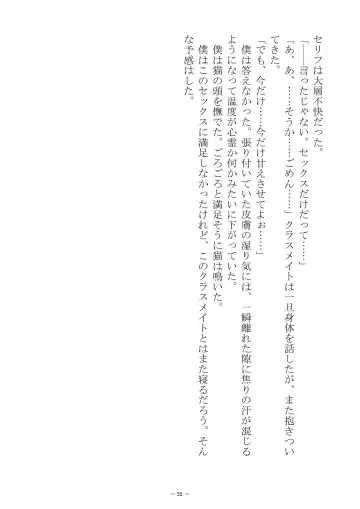 セリフは大層不快だった。
「――言ったじゃない。セックスだけだって……」
「あ、あ、……そうか……ごめん……」クラスメイトは一旦身体を話したが、また抱きつい
てきた。
「でも、今だけ……今だけ甘えさせてよぉ……」
僕は答えなかった。張り付いていた皮膚の湿り気には、一瞬離れた隙に焦りの汗が混じる
ようになって温度が心霊か何かみたいに下がっていた。
僕は猫の頭を撫でた。ごろごろと満足そうに猫は鳴いた。
僕はこのセックスに満足しなかったけれど、このクラスメイトとはまた寝るだろう。そん
な予感はした。
― 55 ―